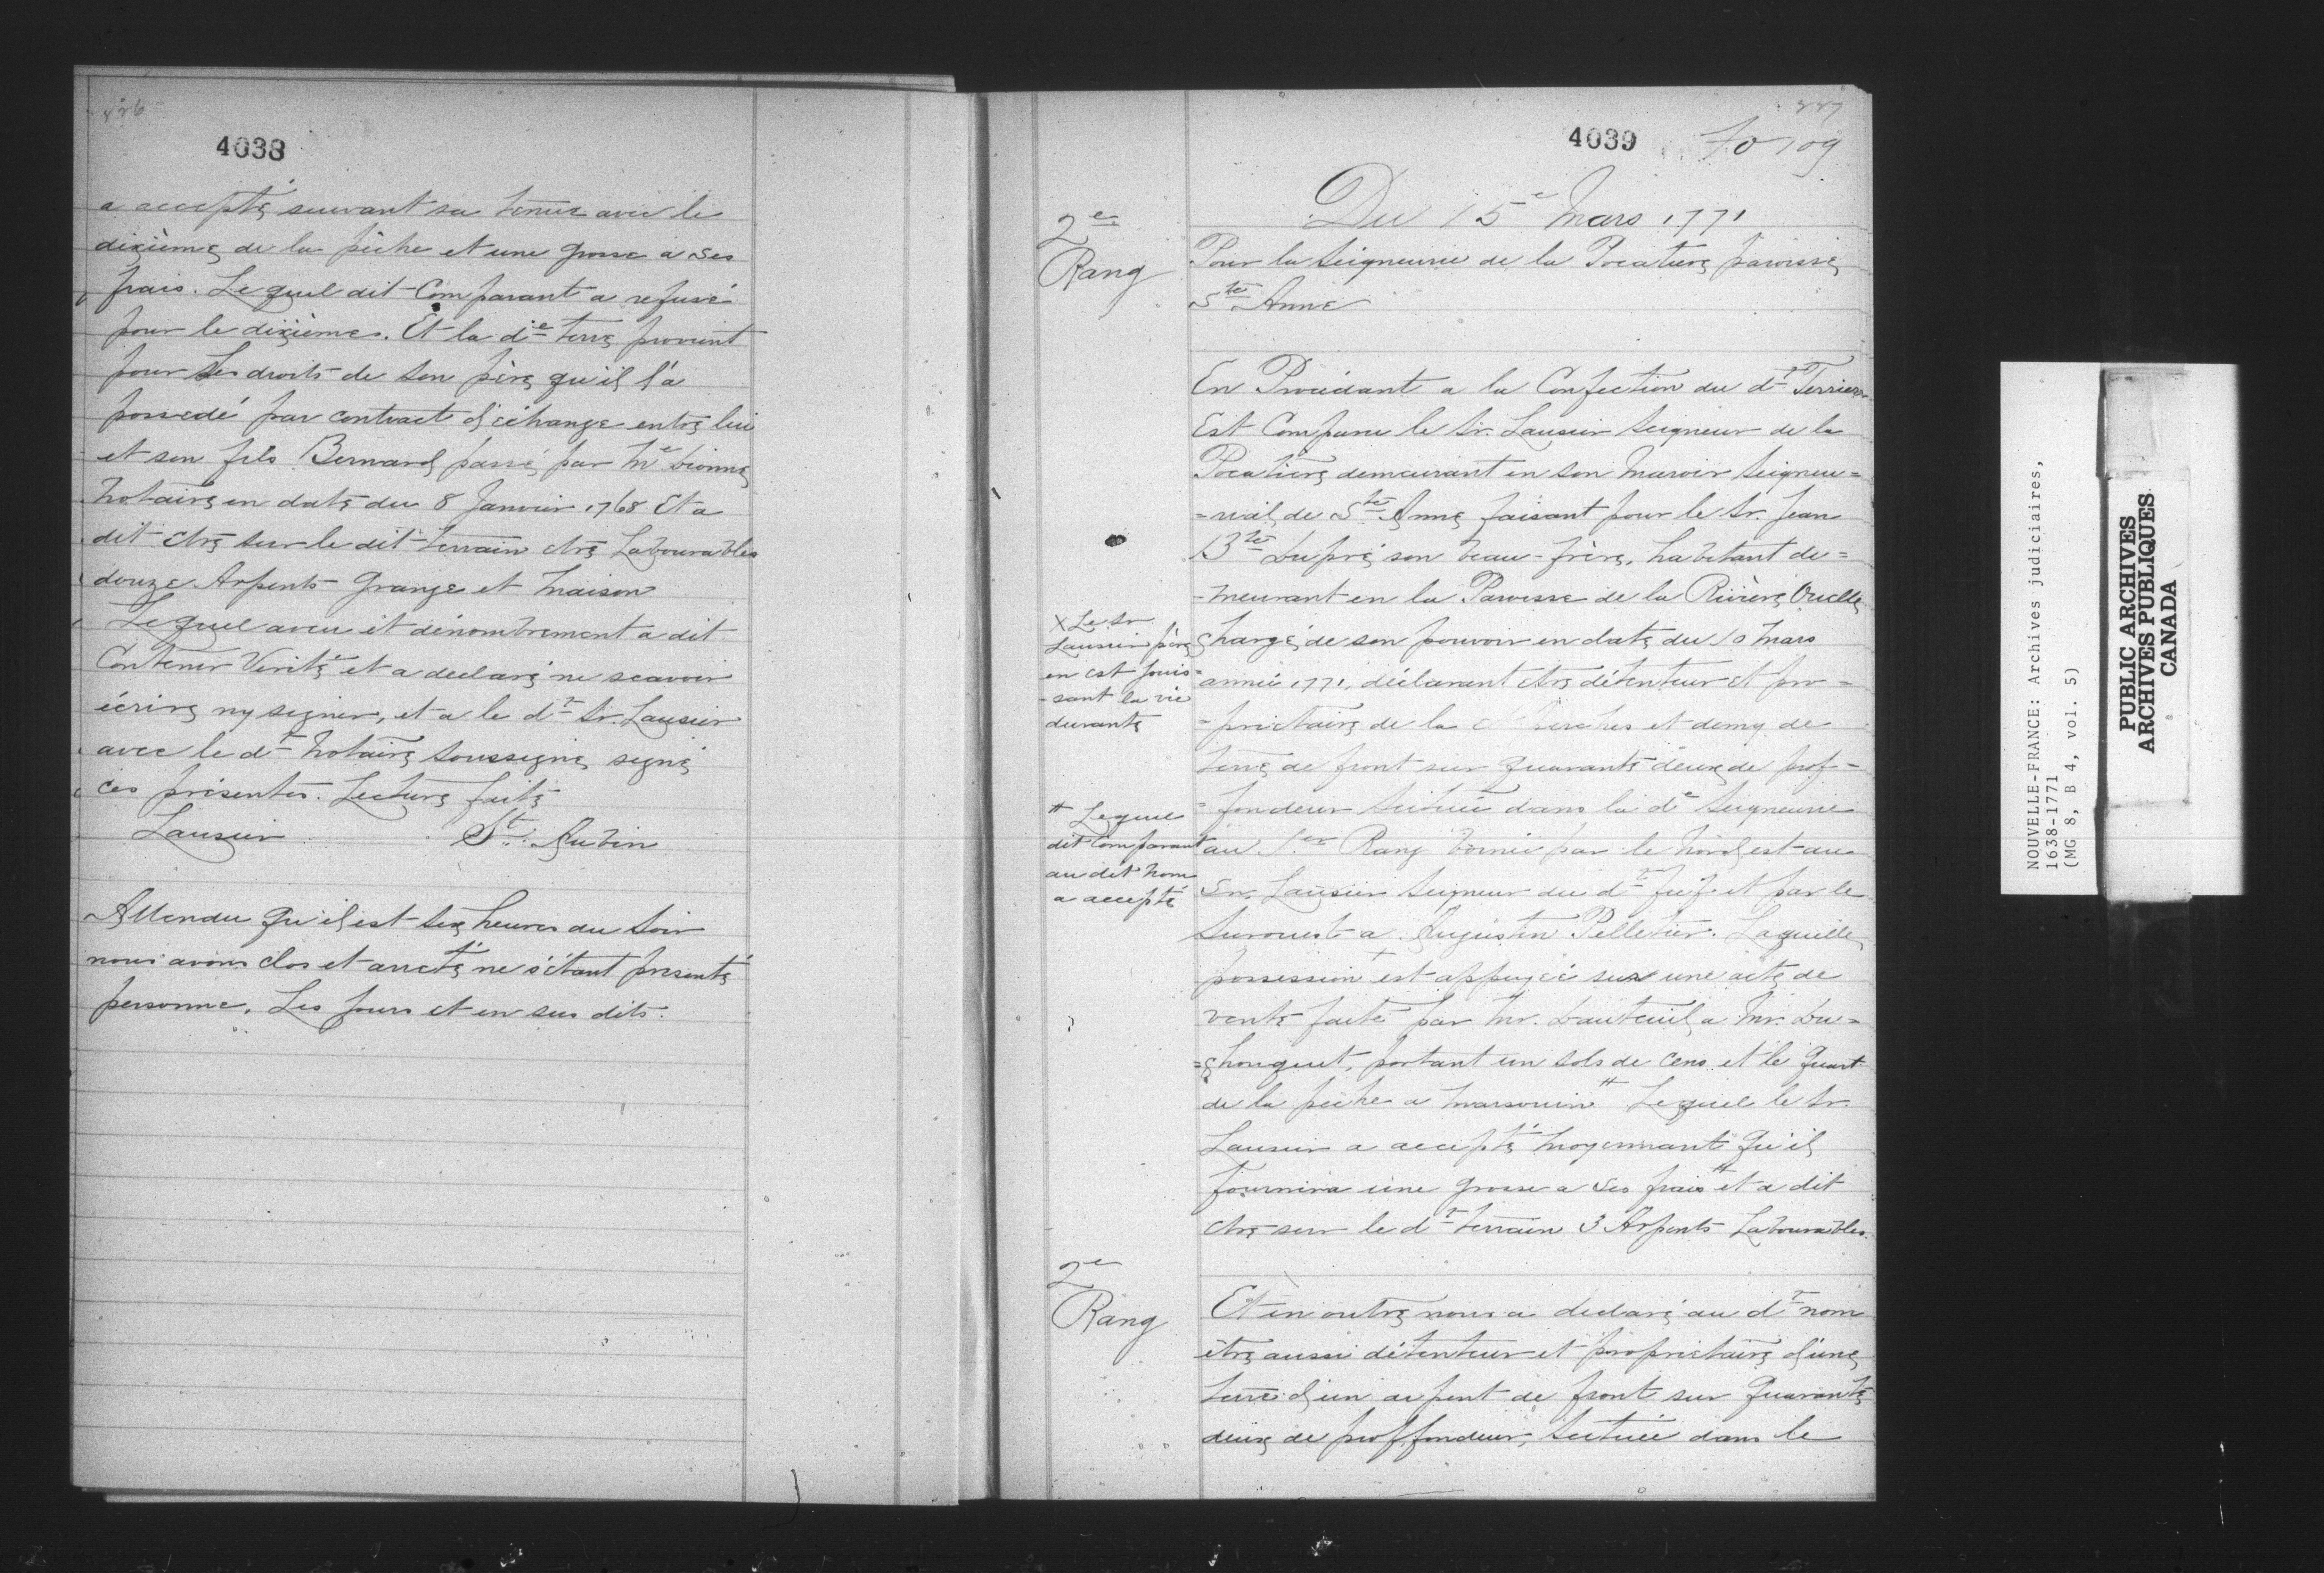 226
4038
a accepté suivant sa tenue avec le
dixième de la pêche et une grosse a ses
frais. Lequel dit Comparant a refusé
pour le dixièmes. Et la die terre provient
pour les droits de son père qu'il l'a
possedé par contract d'échange entre lui
et son fils Bernard passé par Me Dionne
Notaire en date du 8 Janvier 1768 Et a
dit etre sur le dit terrain etre Labourables
douze Arpents Grange et Maison
Lequel aveu et dénombrement a dit
Contenir Verité et a declaré ne scavoir
écrire ny signer, et a le dt Sr. Lausier
avec le dt Notaire soussigné signé
ces présentes. Lecture faite
Lausier St. Aubin
Attendu qu'il est six heures du soir
nous avons clos et arreté ne s'étant presenté
personne. Les jours et en sus dits.
227
4039 Fo 109
Du 15e Mars 1771
2e
Rang
Pour la Seigneurie de la Pocatiere paroisse
Ste Anne
En Procédant a la Confection du dt Terrier
Est Comparu le Sr. Lausier Seigneur de la
Pocatiere demeurant en son Manoir Seigneu=
=rial de Ste Anne faisant pour le Sr. Jean
Bte Dupré son beau-frère, habitant de=
-meurant en la Paroisse de la Rivière Ouelle
chargé de son pouvoir en date du 10 Mars
année 1771, déclarant etre détenteur et pro=
=prietaire de la perches et demy de
terre de front sur quarante deux de prof=
=fondeur scituée dans la de Seigneurie
au 1er Rang bornée par le Nord est au
Sr. Lausier Seigneur du dt fief et par le
Surouest a Augustin Pelletier. Laquelle
possession + est appuyée sur une acte de
vente faite par Mr. Dauteuil a Mr. Du=
=chouquet, portant un sols de cens et le quart
de la pêche a marsouin # Lequel le Sr.
Lausier a accepté moyennant qu'il
fournira une grosse a ses frais # et a dit
etre sur le dt terrain 3 Arpents Labourables.
X Le Sr
Lausier père
en est jouis=
-sant la vie
durante
# Lequel
dit Comparant
au dit nom
a accepté
2e
Rang
Et en outre nous a declaré au dt nom
être aussi détenteur et proprietaire d'une
terre d'un arpent de front sur Quarante
deux de proffondeur, scituée dans le
NOUVELLE-FRANCE: Archives judiciaires,
1638-1771
(MG 8, B 4, vol. 5)
PUBLIC ARCHIVES
ARCHIVES PUBLIQUES
CANADA